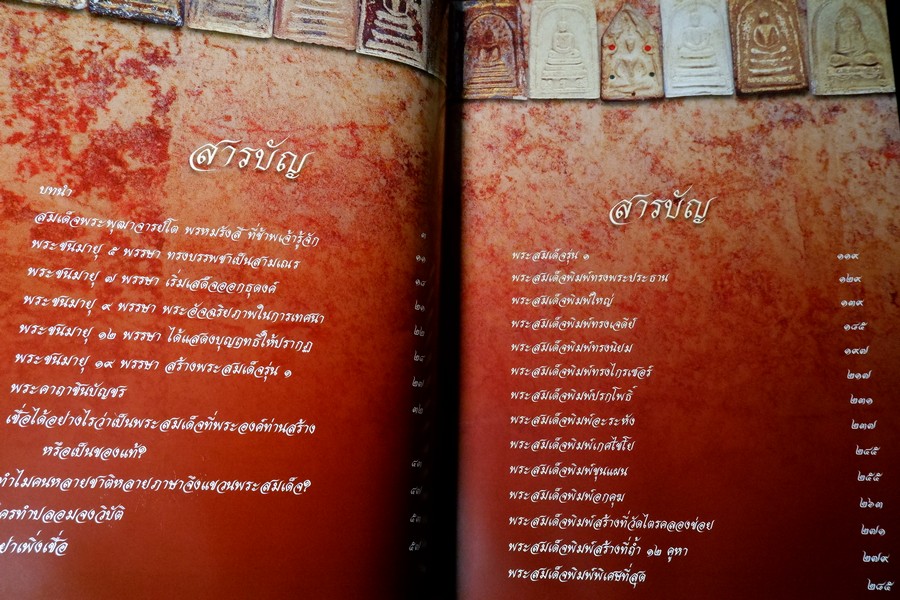 สารบัญ
บทนำ
สมเด็จพระพุฒาจารย์โต พรหมรังสี ที่ข้าพเจ้ารู้จัก ๓
พระชนมายุ ๕ พรรษา ทรงบรรพชาเป็นสามเณร ๑๑
พระชนมายุ ๗ พรรษา เริ่มเสด็จออกธุดงค์ ๑๘
พระชนมายุ ๙ พรรษา พระอัจฉริยภาพในการเทศนา ๒๑
พระชนมายุ ๑๒ พรรษา ได้แสดงบุญฤทธิ์ให้ปรากฏ ๒๒
พระชนมายุ ๑๙ พรรษา สร้างพระสมเด็จรุ่น ๑ ๒๔
พระคาถาชินบัญชร ๒๗
เชื่อได้อย่างไรว่าเป็นพระสมเด็จที่พระองค์ท่านสร้าง ๓๒
หรือเป็นของแท้?
ทำไมคนหลายชาติหลายภาษาจึงแขวนพระสมเด็จ?
ใครทำปลอมจงวิบัติ
อย่าเพิ่งเชื่อ
สารบัญ
พระสมเด็จรุ่น ๑ ๑๑๙
พระสมเด็จพิมพ์ทรงพระประธาน ๑๒๙
พระสมเด็จพิมพ์ใหญ่ ๑๓๙
พระสมเด็จพิมพ์ทรงเจดีย์ ๑๘๕
พระสมเด็จพิมพ์ทรงนิยม ๑๙๗
พระสมเด็จพิมพ์ทรงไกรเซอร์ ๒๑๗
พระสมเด็จพิมพ์ปรกโพธิ์ ๒๓๑
พระสมเด็จพิมพ์อะระหัง ๒๓๗
พระสมเด็จพิมพ์เกศไชโย ๒๔๕
พระสมเด็จพิมพ์ขุนแผน ๒๕๕
พระสมเด็จพิมพ์อกคุฑ ๒๖๓
พระสมเด็จพิมพ์สร้างที่วัดไตรคลองช่อย ๒๗๑
พระสมเด็จพิมพ์สร้างที่ถ้ำ ๑๒ คูหา ๒๗๙
พระสมเด็จพิมพ์พิเศษที่สุด ๒๘๕